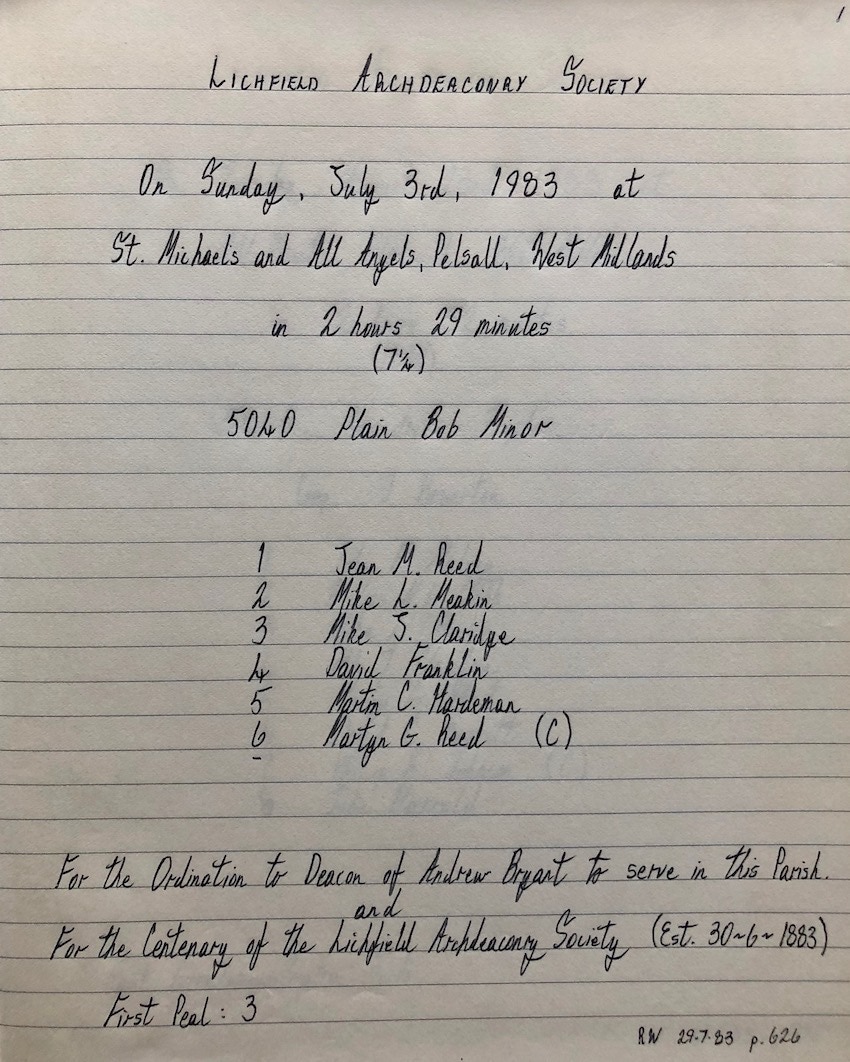 1
LICHFIELD ARCHDEACONRY SOCIETY
On Sunday, July 3rd, 1983 at
St. Michael's and All Angels, Pelsall, West Midlands
in 2 hours 29 minutes
(7¼)
5040 Plain Bob Minor
1 Jean M. Reed
2 Mike L. Meakin
3 Mike J. Claridge
4 David Franklin
5 Martin C. Hardeman
6 Martyn G. Reed (C)
For the Ordination to Deacon of Andrew Bryant to serve in this Parish.
and
For the Centenary of the Lichfield Archdeaconry Society (Est. 30~6~1883)
First Peal: 3
RW 29.7.83 p.626